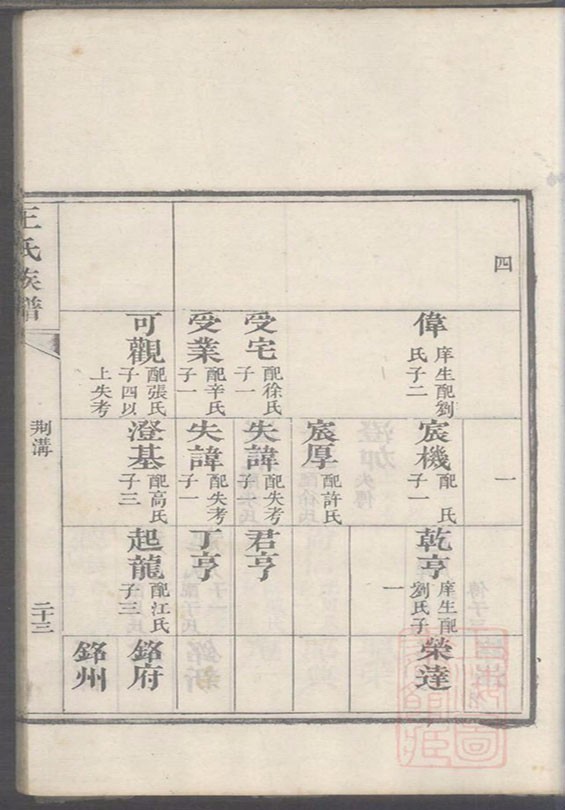 四
一
偉
庠生配劉
氏子二
宸機
配 氏
子一
乾亨
庠生配
劉氏子
一
榮達
宸厚
配許氏
受宅
配徐氏
子一
失諱
配失考
子一
君亨
受業
配辛氏
子一
失諱
配失考
子一
丁亨
可觀
配張氏
子四以
上失考
澄基
配高氏
子三
起龍
配江氏
子三
銘府
銘州
王氏族譜
荆溝
二十三